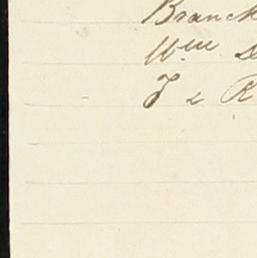 Branck
Wm
J & R